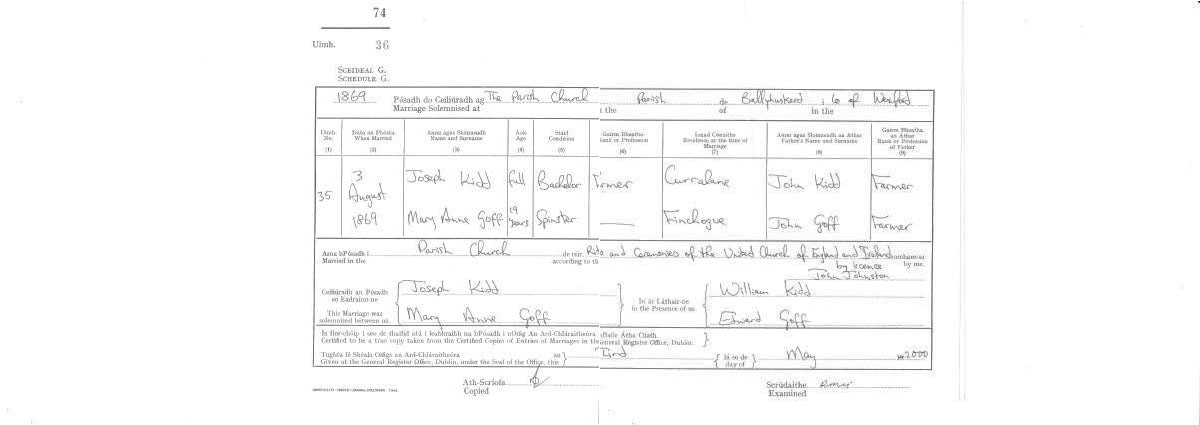 74
Uimh. 36
SCEIDEAL G.
SCHEDULE G.
1869 Pósadh do Ceiliúradh ag The Parish Church Parish de Ballyhuskard i Co of Wexford
Marriage Solemnised at the of in the
Uimh. Dáta an Phósta Ainm agus Sloinneadh Aois Staid Gairm Bheatha Ionad Comhnaithe Ainm agus Sloinneadh an Athar Gairm Bheatha
No. When Married Name and Surname Age Condition Rank or Profession Residence at the time of Father's Name and Surname an Athar
Marriage Rank or Profession
of Father
(1) (2) (3) (4) (5) (6) (7) (8) (9)
3 Joseph Kidd full Bachelor Farmer Curralane John Kidd Farmer
35 August
1869 Mary Anne Goff 19 years Spinster — Finchogue John Goff Farmer
Arna bPósadh i Parish Church de réir Rites and Ceremonies of the United Church of England and Ireland
Married in the according to th by licence by me.
John Johnston
Ceiliúradh an Pósadh Joseph Kidd William Kidd
so Eadrainn-ne In ár Láthair-ne
This Marriage was in the Presence of us
solemnized between us Mary Anne Goff Edward Goff
Certified to be a true copy taken from the Certified Copies of Entries of Marriages in the General Register Office, Dublin.
Tughta fé Shéala Oifige an Ard-Chláraitheóra an Third lá so de May 2000
Given at the General Register Office, Dublin, under the Seal of the Office, this day of
Ath-Scríofa Scrúdaithe
Copied Examined